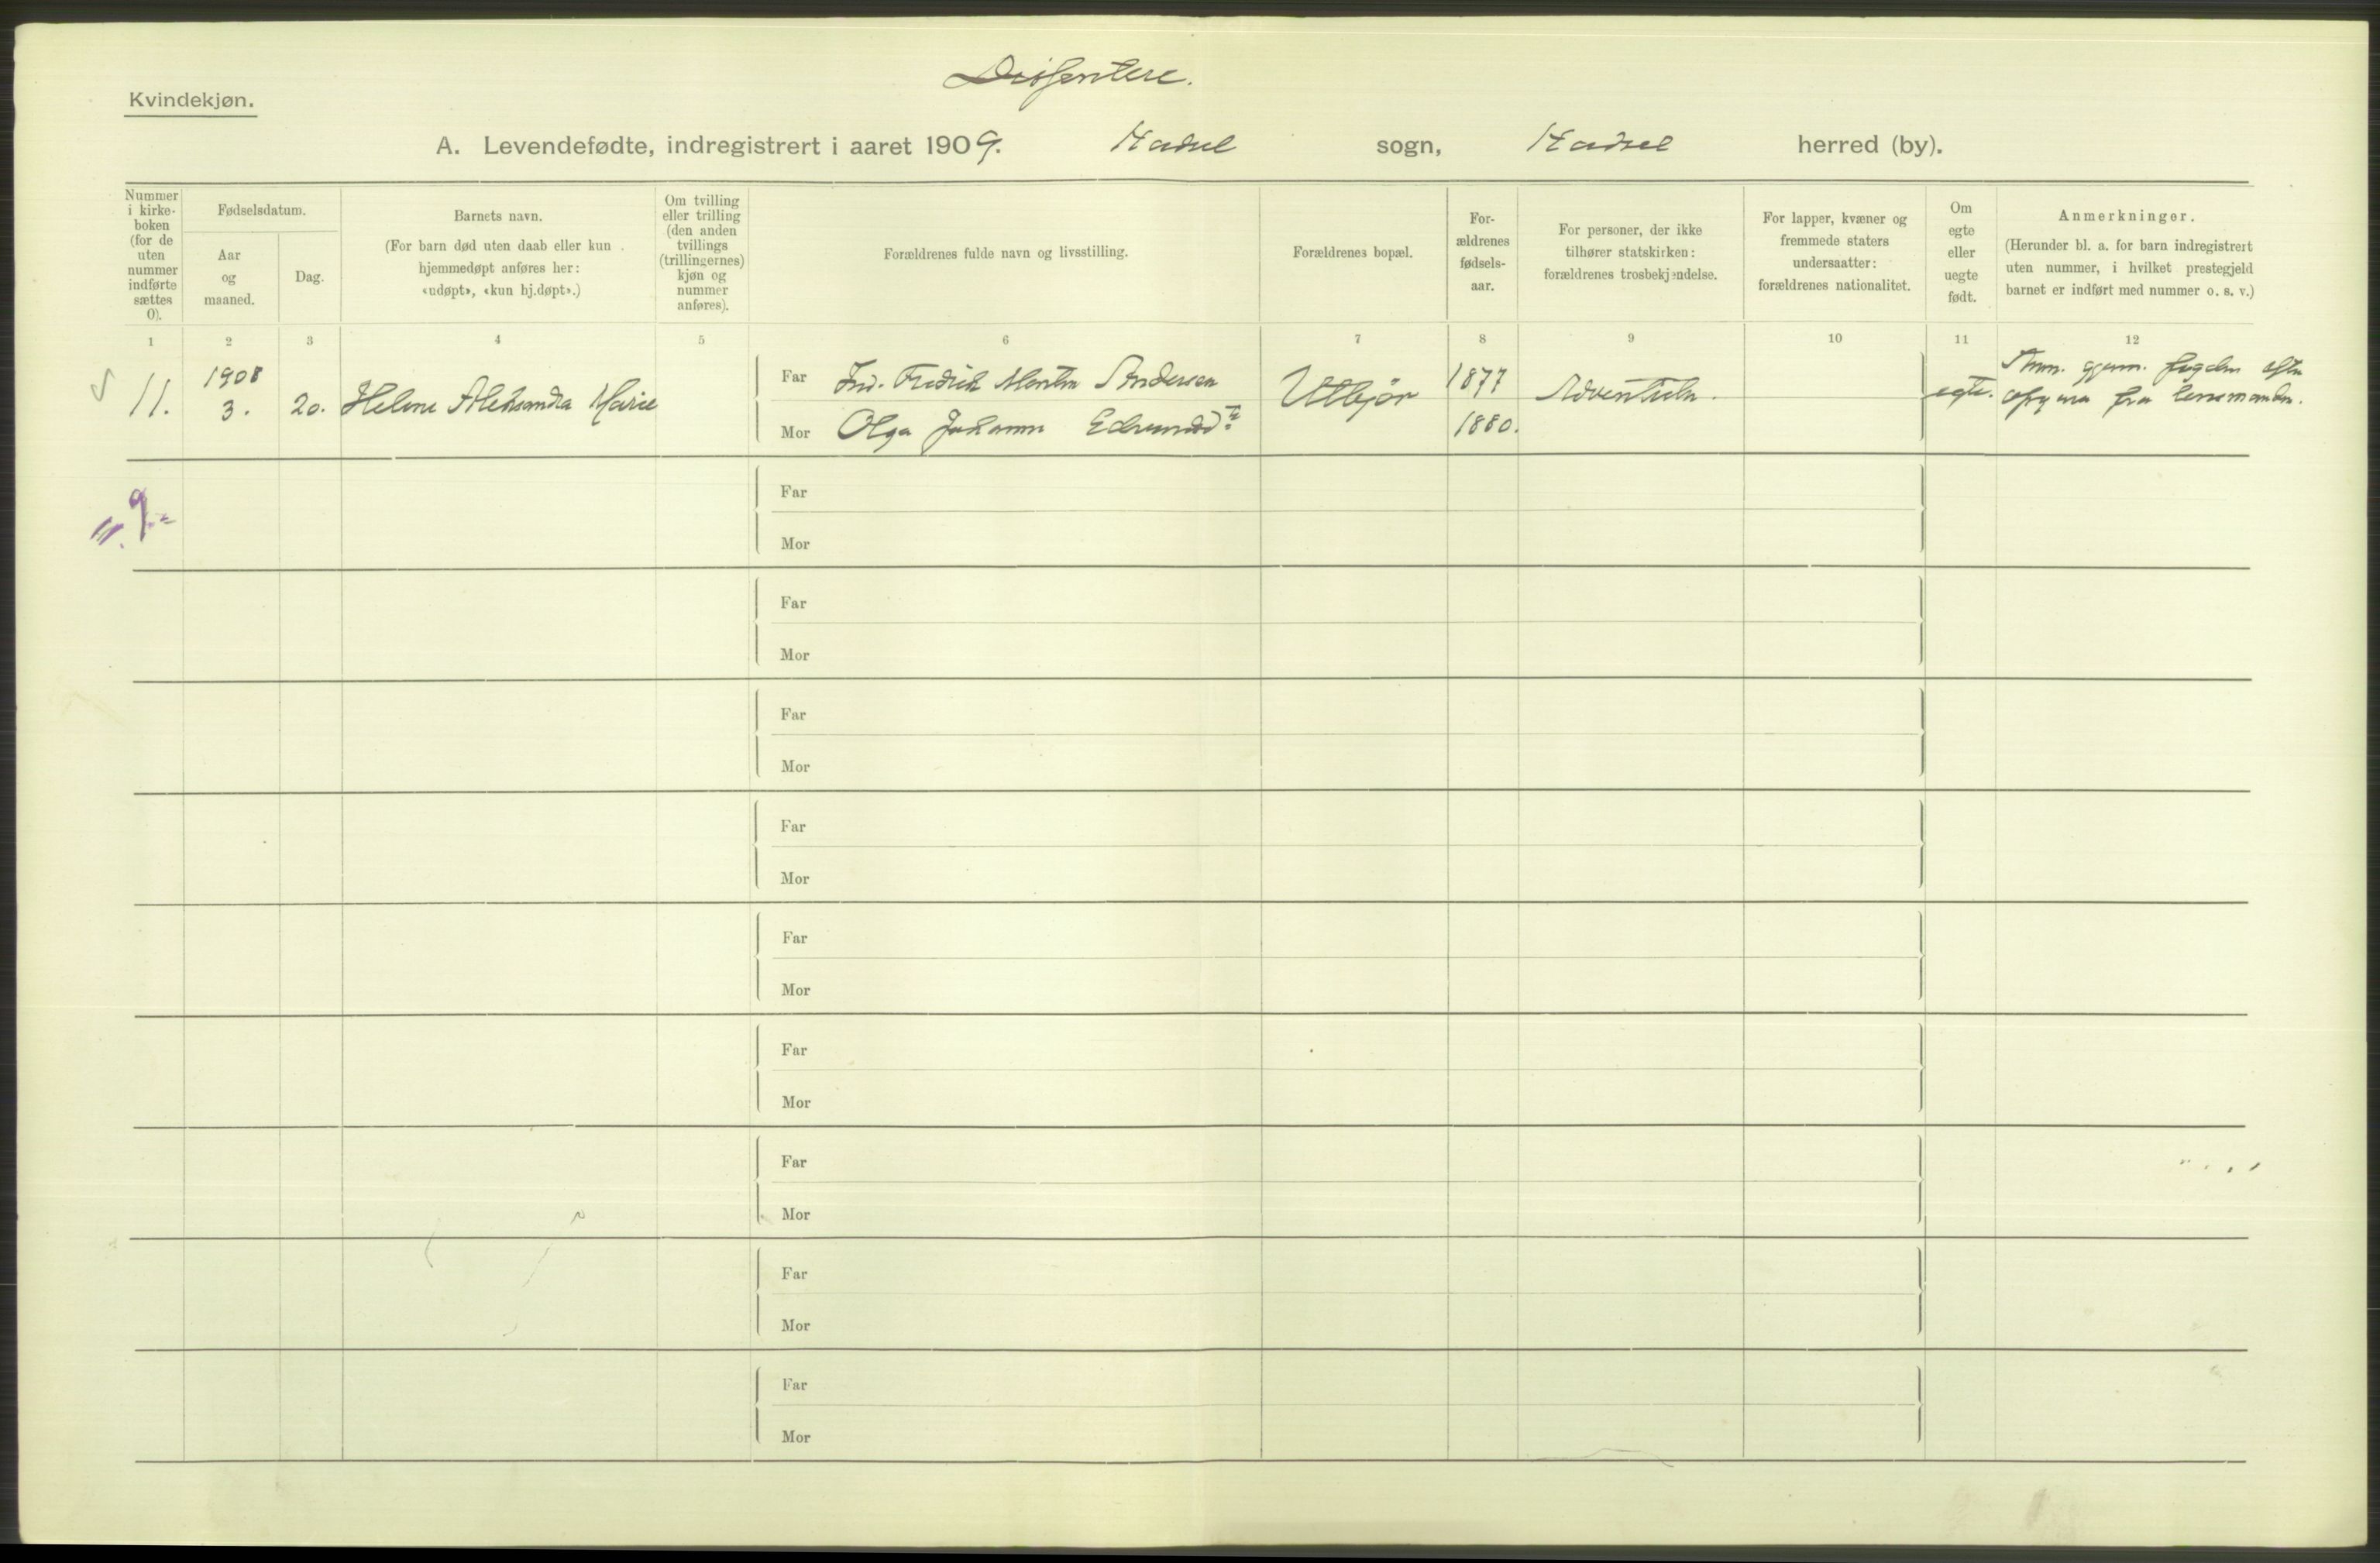 Dissentere.
Kvindekjøn.
A. Levendefødte, indregistrert i aaret 1909. Hadsel sogn, Hadsel herred (by).
Nummer
i kirke-
boken
(for de
uten
nummer
indførte
sættes
0).
Fødselsdatum.
Aar
og
maaned.
Dag.
Barnets navn.
(For barn død uten daab eller kun
hjemmedøpt anføres her:
«udøpt», «kun hj.døpt».)
Om tvilling
eller trilling
(den anden
tvillings
(trillingernes)
kjøn og
nummer
anføres).
Forældrenes fulde navn og livsstilling.
Forældrenes bopæl.
For-
ældrenes
fødsels-
aar.
For personer, der ikke
tilhører statskirken:
forældrenes trosbekjendelse.
For lapper, kvæner og
fremmede staters
undersaatter:
forældrenes nationalitet.
Om
egte
eller
uegte
født.
Anmerkninger.
(Herunder bl. a. for barn indregistrert
uten nummer, i hvilket prestegjeld
barnet er indført med nummer o. s. v.)
1 2 3 4 5 6 7 8 9 10 11 12
11. 1908
3. 20. Helene Aleksandra Marie
Far Ind. Fredrik Andersen
Mor Olga Johanne
1877
1880.
egte.
Anm. gjenn. fogden efter
fra lensmanden.
9.
Far
Mor
Far
Mor
Far
Mor
Far
Mor
Far
Mor
Far
Mor
Far
Mor
Far
Mor
Far
Mor